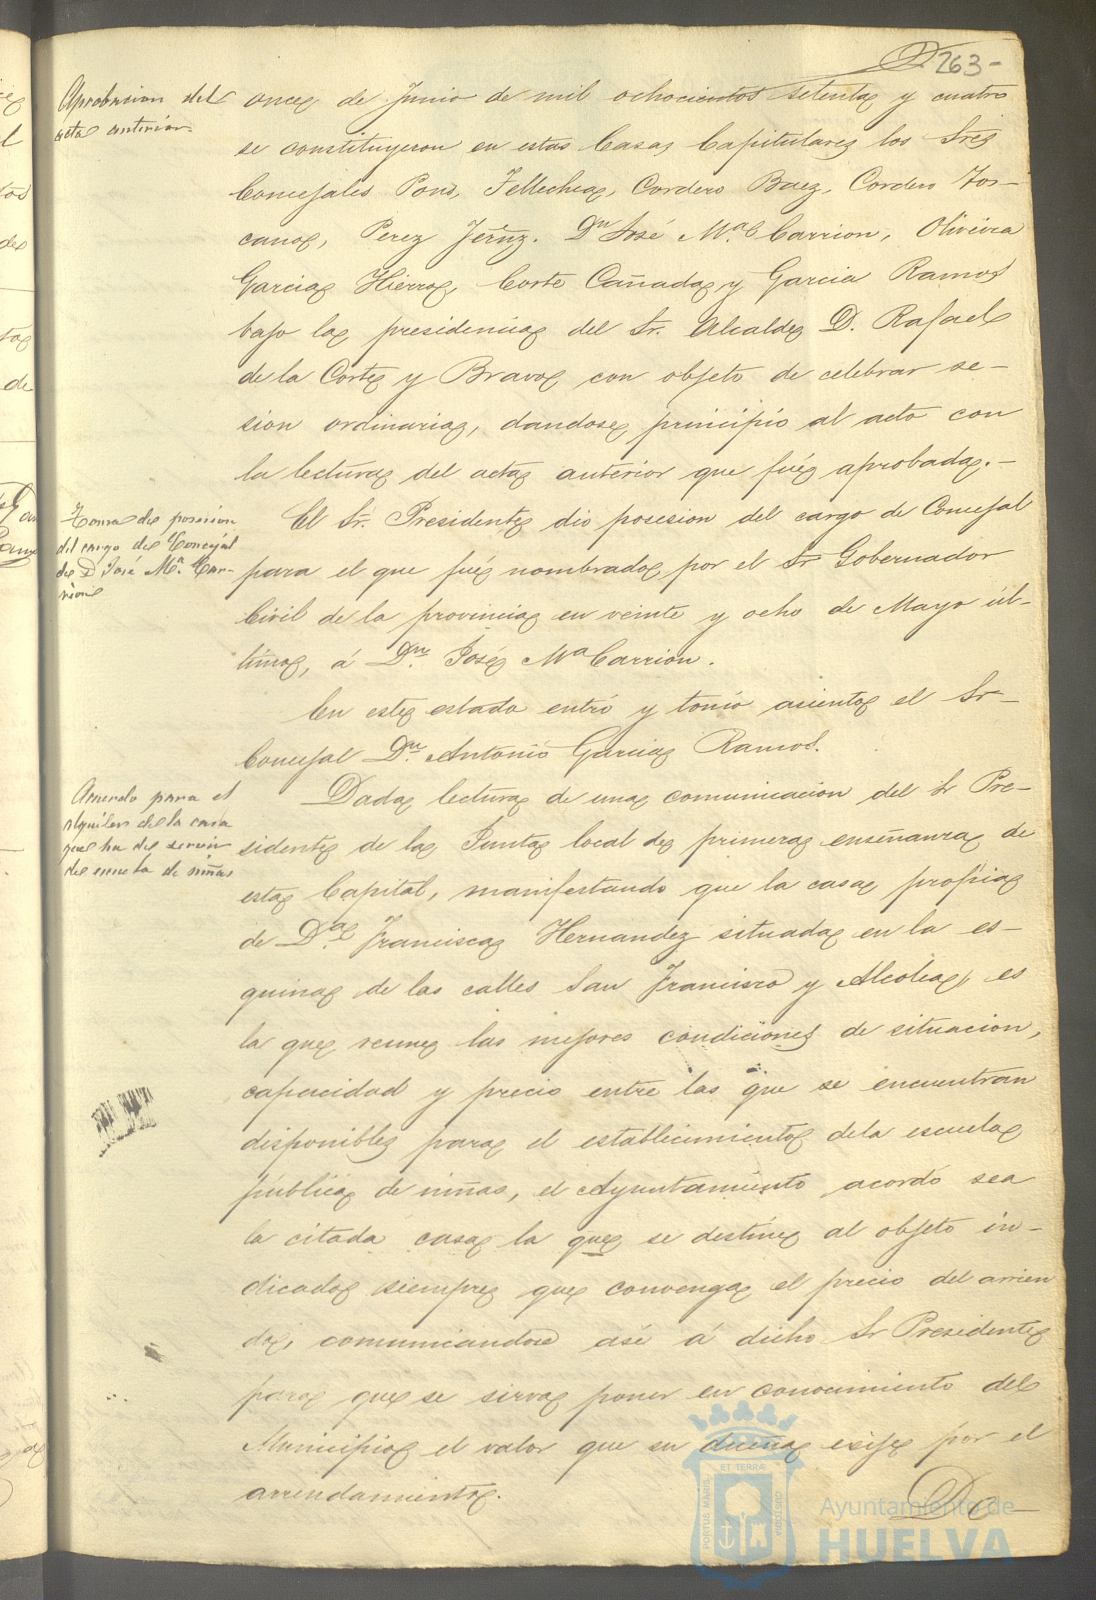 263-
Aprobacion del
acta anterior.
once de Junio de mil ochocientos setenta y cuatro
se constituyeron en estas Casas Capitulares los Sres
Concejales Pons, Tellechea, Cordero Baez, Cordero Tos-
cano, Perez Jerez. Dn José M.a Carrion, Oliveira
Garcia Hierro, Corte Cañada y Garcia Ramos
bajo la presidencia del Sr. Alcalde D. Rafael
de la Corte y Bravo con objeto de celebrar se-
sion ordinaria, dandose principio al acto con
la lectura del acta anterior que fué aprobada.-
Toma de posesion
del cargo de Concejal
de D José Ma. Car-
rion
El Sr. Presidente dio posesion del cargo de Concejal
para el que fué nombrado por el Sr Gobernador
Civil de la provincia en veinte y ocho de Mayo úl-
timo, á Dn. José Ma Carrion.
En este estado entró y tomó asiento el Sr
Concejal Dn. Antonio Garcia Ramos.
Acuerdo para el
alquiler de la casa
que ha de servir
de escuela de niñas
Dada lectura de una comunicacion del Sr Pre-
sidente de la Junta local de primera enseñanza de
esta Capital, manifestando que la casa propia
de D.a Francisca Hernandez situada en la es-
quina de las calles San Francisco y Alcolea, es
la que reune las mejores condiciones de situacion,
capacidad y precio entre las que se encuentran
disponibles para el establecimiento dela escuela
pública de niñas, el Ayuntamiento acordó sea
la citada casa la que se destine al objeto in-
dicado siempre que convenga el precio del arrien
do, comunicandose asi á dicho Sr Presidente
para que se sirva poner en conocimiento del
Municipio el valor que su dueña exije por el
arrendamiento.
PORTUS MARIS ET TERRÆ CUSTODIA
Ayuntamiento de
HUELVA